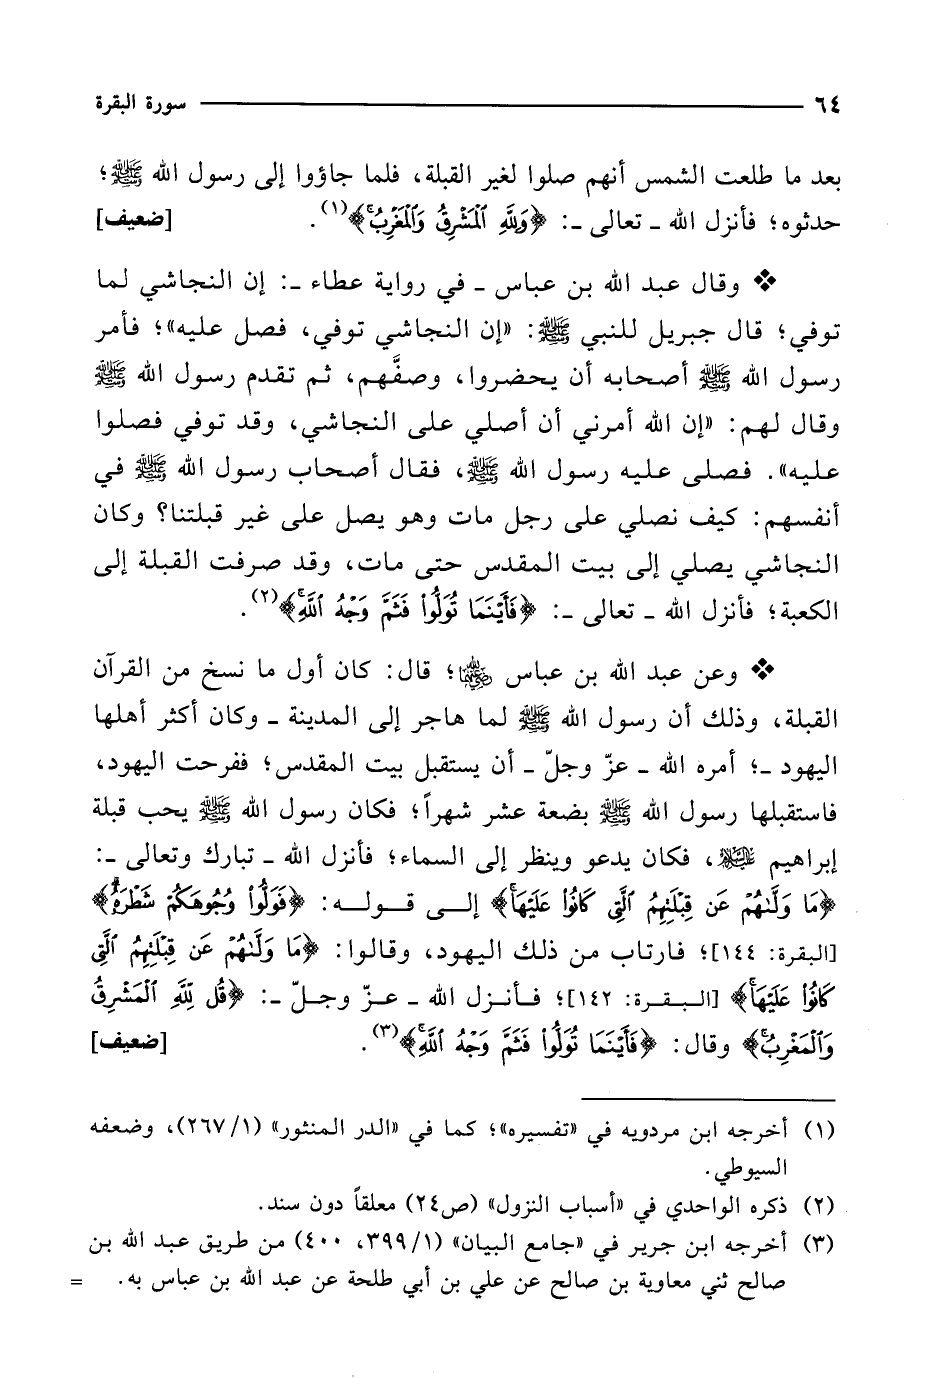 ٦٤ سورة البقرة
بعد ما طلعت الشمس أنهم صلوا لغير القبلة، فلما جاؤوا إلى رسول الله ﷺ؛
حدثوه؛ فأنزل الله ـ تعالى ـ: ﴿وَلِلَّهِ ٱلْمَشْرِقُ وَٱلْمَغْرِبُ﴾(١). [ضعيف]
❖ وقال عبد الله بن عباس ـ في رواية عطاء ـ: إن النجاشي لما
توفي؛ قال جبريل للنبي ﷺ: «إن النجاشي توفي، فصل عليه»؛ فأمر
رسول الله ﷺ أصحابه أن يحضروا، وصفَّهم، ثم تقدم رسول الله ﷺ
وقال لهم: «إن الله أمرني أن أصلي على النجاشي، وقد توفي فصلوا
عليه». فصلى عليه رسول الله ﷺ، فقال أصحاب رسول الله ﷺ في
أنفسهم: كيف نصلي على رجل مات وهو يصل على غير قبلتنا؟ وكان
النجاشي يصلي إلى بيت المقدس حتى مات، وقد صرفت القبلة إلى
الكعبة؛ فأنزل الله ـ تعالى ـ: ﴿فَأَيْنَمَا تُوَلُّوا۟ فَثَمَّ وَجْهُ ٱللَّهِۚ﴾(٢).
❖ وعن عبد الله بن عباس رضي الله عنهما؛ قال: كان أول ما نسخ من القرآن
القبلة، وذلك أن رسول الله ﷺ لما هاجر إلى المدينة ـ وكان أكثر أهلها
اليهود ـ؛ أمره الله ـ عزّ وجلّ ـ أن يستقبل بيت المقدس؛ ففرحت اليهود،
فاستقبلها رسول الله ﷺ بضعة عشر شهراً؛ فكان رسول الله ﷺ يحب قبلة
إبراهيم عليه السلام، فكان يدعو وينظر إلى السماء؛ فأنزل الله ـ تبارك وتعالى ـ:
﴿مَا وَلَّىٰهُمْ عَن قِبْلَتِهِمُ ٱلَّتِى كَانُوا۟ عَلَيْهَاۚ﴾ إلى قوله: ﴿فَوَلُّوا۟ وُجُوهَكُمْ شَطْرَهُۥ﴾
[البقرة: ١٤٤]؛ فارتاب من ذلك اليهود، وقالوا: ﴿مَا وَلَّىٰهُمْ عَن قِبْلَتِهِمُ ٱلَّتِى
كَانُوا۟ عَلَيْهَاۚ﴾ [البقرة: ١٤٢]؛ فأنزل الله ـ عزّ وجلّ ـ: ﴿قُل لِّلَّهِ ٱلْمَشْرِقُ
وَٱلْمَغْرِبُۚ﴾ وقال: ﴿فَأَيْنَمَا تُوَلُّوا۟ فَثَمَّ وَجْهُ ٱللَّهِۚ﴾(٣). [ضعيف]
(١) أخرجه ابن مردويه في «تفسيره»؛ كما في «الدر المنثور» (١/ ٢٦٧)، وضعفه
السيوطي.
(٢) ذكره الواحدي في «أسباب النزول» (ص٢٤) معلقاً دون سند.
(٣) أخرجه ابن جرير في «جامع البيان» (١/ ٣٩٩، ٤٠٠) من طريق عبد الله بن
صالح ثني معاوية بن صالح عن علي بن أبي طلحة عن عبد الله بن عباس به. =